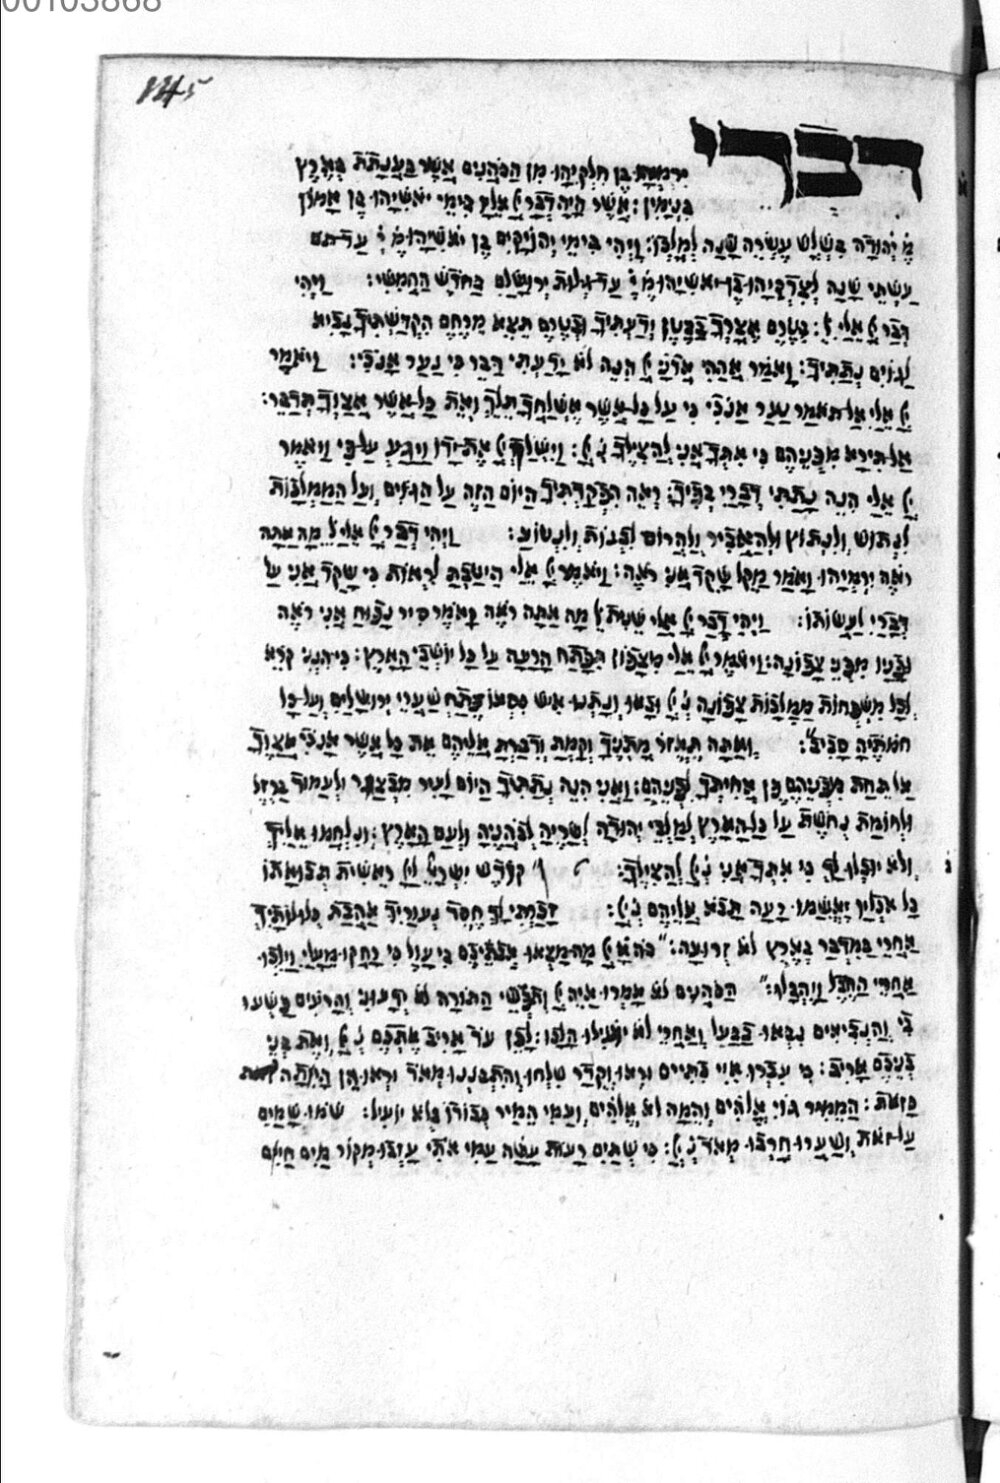 00103868
145
דברי
ירמיהו בן חלקיהו מן הכהנים אשר בענתת בארץ
בנימין: אשר היה דבר יְיָ אליו בימי יאשיהו בן אמון
יהודה בשלש עשרה שנה למלכו: ויהי בימי יהויקים בן יאשיהו עד תם
עשתי שנה לצדקיהו בן יאשיהו עד גלות ירושלם בחדש החמישי: ויהי
דבר יְיָ אלי בטרם אצרך בבטן ידעתיך ובטרם תצא מרחם הקדשתיך נביא
לגוים נתתיך: ואמר אהה אדני יְיָ הנה לא ידעתי דבר כי נער אנכי: ויאמר
יְיָ אלי אל תאמר נער אנכי כי על כל אשר אשלחך תלך ואת כל אשר אצוך תדבר:
אל תירא מפניהם כי אתך אני להצילך יְיָ: וישלח יְיָ את ידו ויגע על פי ויאמר
יְיָ אלי הנה נתתי דברי בפיך: ראה הפקדתיך היום הזה על הגוים ועל הממלכות
לנתוש ולנתוץ ולהאביד ולהרוס לבנות ולנטוע: ויהי דבר יְיָ אלי מה אתה
ראה ירמיהו ואמר מקל שקד אני ראה: ויאמר יְיָ אלי היטבת לראות כי שקד אני על
דברי לעשותו: ויהי דבר יְיָ אלי שנית מה אתה ראה ואמר סיר נפוח אני ראה
ופניו מפני צפונה: ויאמר יְיָ אלי מצפון תפתח הרעה על כל יושבי הארץ: כי הנני קרא
לכל משפחות ממלכות צפונה יְיָ ובאו ונתנו איש כסאו פתח שערי ירושלים ועל כל
חמתיה סביב: ואתה תאזר מתניך וקמת ודברת אליהם את כל אשר אנכי אצוך
אל תחת מפניהם פן אחיתך לפניהם: ואני הנה נתתיך היום לעיר מבצר ולעמוד ברזל
ולחומת נחשת על כל הארץ למלכי יהודה לשריה לכהניה ולעם הארץ: ונלחמו אליך
ולא יוכלו לך כי אתך אני יְיָ להצילך: קודש ישראל ליְיָ ראשית תבואתו
כל אכליו יאשמו רעה תבא אליהם יְיָ: זכרתי לך חסד נעוריך אהבת כלולתיך
אחרי במדבר בארץ לא זרועה: יְיָ מה מצאו אבתיכם בי עול כי רחקו מעלי וילכו
אחרי ההבל ויהבלו: הכהנים לא אמרו איה יְיָ ותפשי התורה לא ידעוני והרעים פשעו
בי והנביאים נבאו בבעל ואחרי לא יועילו הלכו: לכן עוד אריב אתכם יְיָ ואת בני
בניכם אריב: כי עברו איי כתיים וראו וקדר שלחו והתבוננו מאד וראו הן היתה
כזאת: ההמיר גוי אלהים והמה לא אלהים ועמי המיר כבודו בלא יועיל: שמו שמים
על זאת ושערו חרבו מאד יְיָ: כי שתים רעות עשה עמי אתי עזבו מקור מים חיים